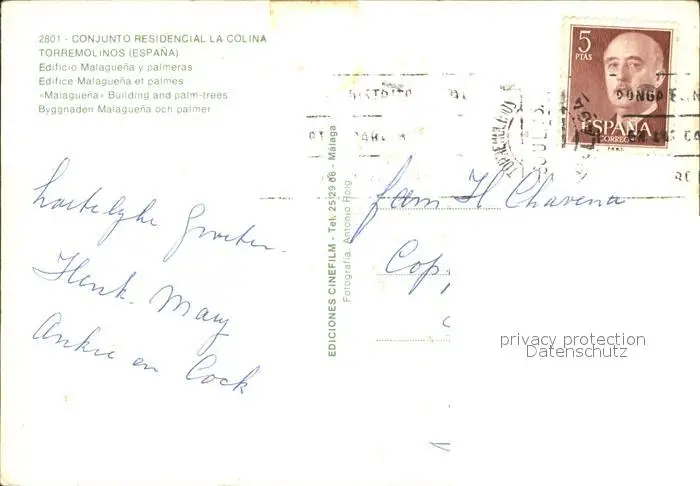 2801 - CONJUNTO RESIDENCIAL LA COLINA
TORREMOLINOS (ESPAÑA)
Edificio Malagueña y palmeras
Edifice Malagueña et palmes
«Malagueña» Building and palm-trees
Byggnaden Malagueña och palmer
Hartelyke Groeten
Henk. Mary
Ankie en Cock
EDICIONES CINEFILM - Tel. 25 29 06 - Málaga
Fotografía: Antonio Roig
5
PTAS
ESPAÑA
CORREOS
DISTRITO
PONGA EN
TORREMOLINOS
MALAGA
fam H Chavena
Cop
privacy protection
Datenschutz